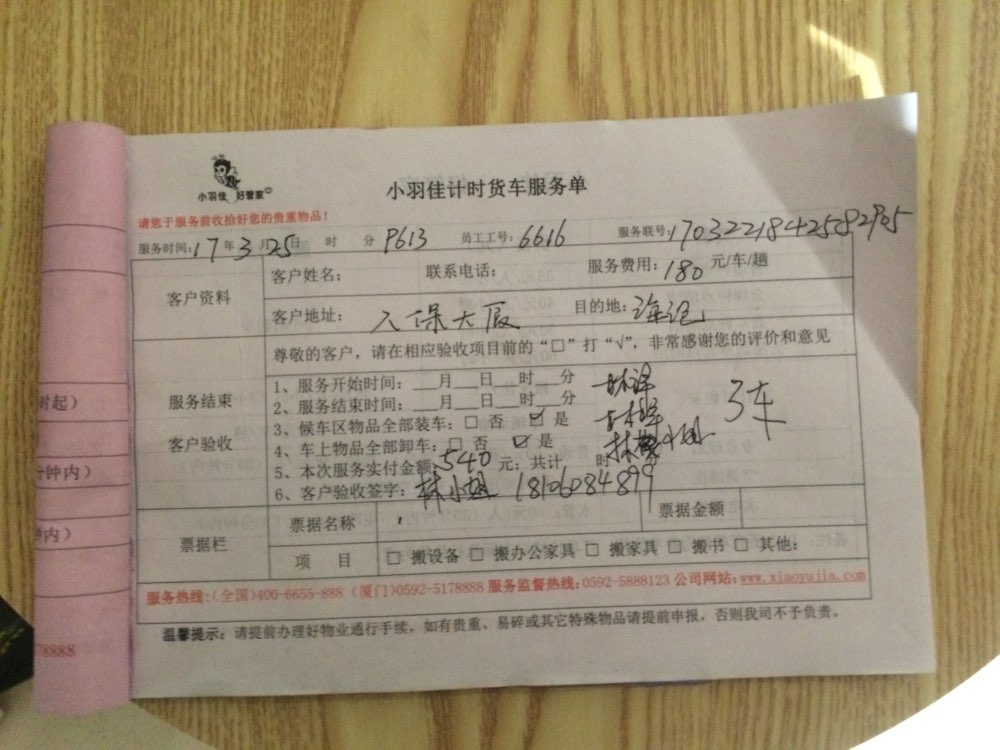 小羽佳 好管家
小羽佳计时货车服务单
请您于服务前收拾好您的贵重物品！
服务时间：17年3月25日 时 分 P613 员工工号：6616 服务联号：
客户资料
客户姓名： 联系电话： 服务费用：180元/车/趟
客户地址：人保大厦 目的地：海沧
尊敬的客户，请在相应验收项目前的“□”打“√”，非常感谢您的评价和意见
服务结束
客户验收
1、服务开始时间：___月___日___时___分
2、服务结束时间：___月___日___时___分
3、候车区物品全部装车：□ 否 ☑ 是
4、车上物品全部卸车：□ 否 ☑ 是
5、本次服务实付金额：540元；共计 时
6、客户验收签字：林小姐 18106084899
3车
票据栏
票据名称 票据金额
项 目 □ 搬设备 □ 搬办公家具 □ 搬家具 □ 搬书 □ 其他：
服务热线：（全国）400-6655-888（厦门）0592-5178888 服务监督热线：0592-5888123 公司网站：www.xiaoyujia.com
温馨提示：请提前办理好物业通行手续，如有贵重、易碎或其它特殊物品请提前申报，否则我司不予负责。
时起）
分钟内）
内）
78888